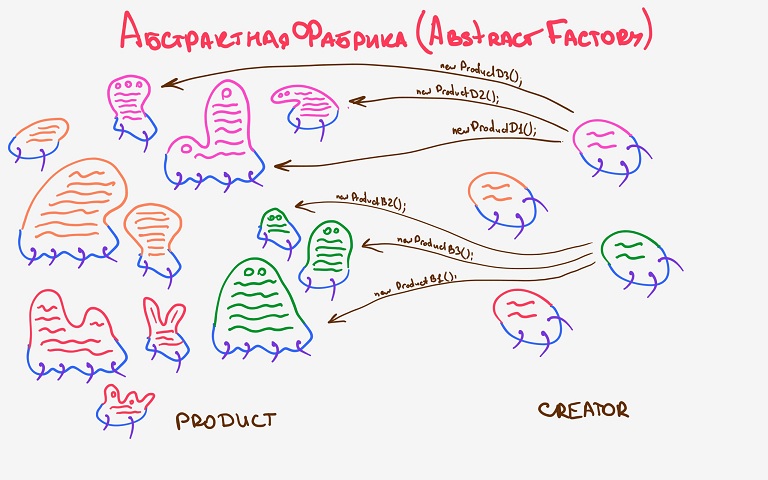 Абстрактная Фабрика (Abstract Factory)
new ProductD3();
new ProductD2();
new ProductD1();
new ProductB2();
new ProductB3();
new ProductB1();
PRODUCT
CREATOR